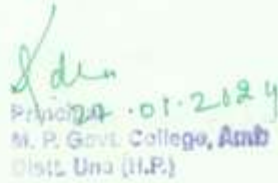 Principal
27.01.2024
M. P. Govt. College, Amb
Distt. Una (H.P.)